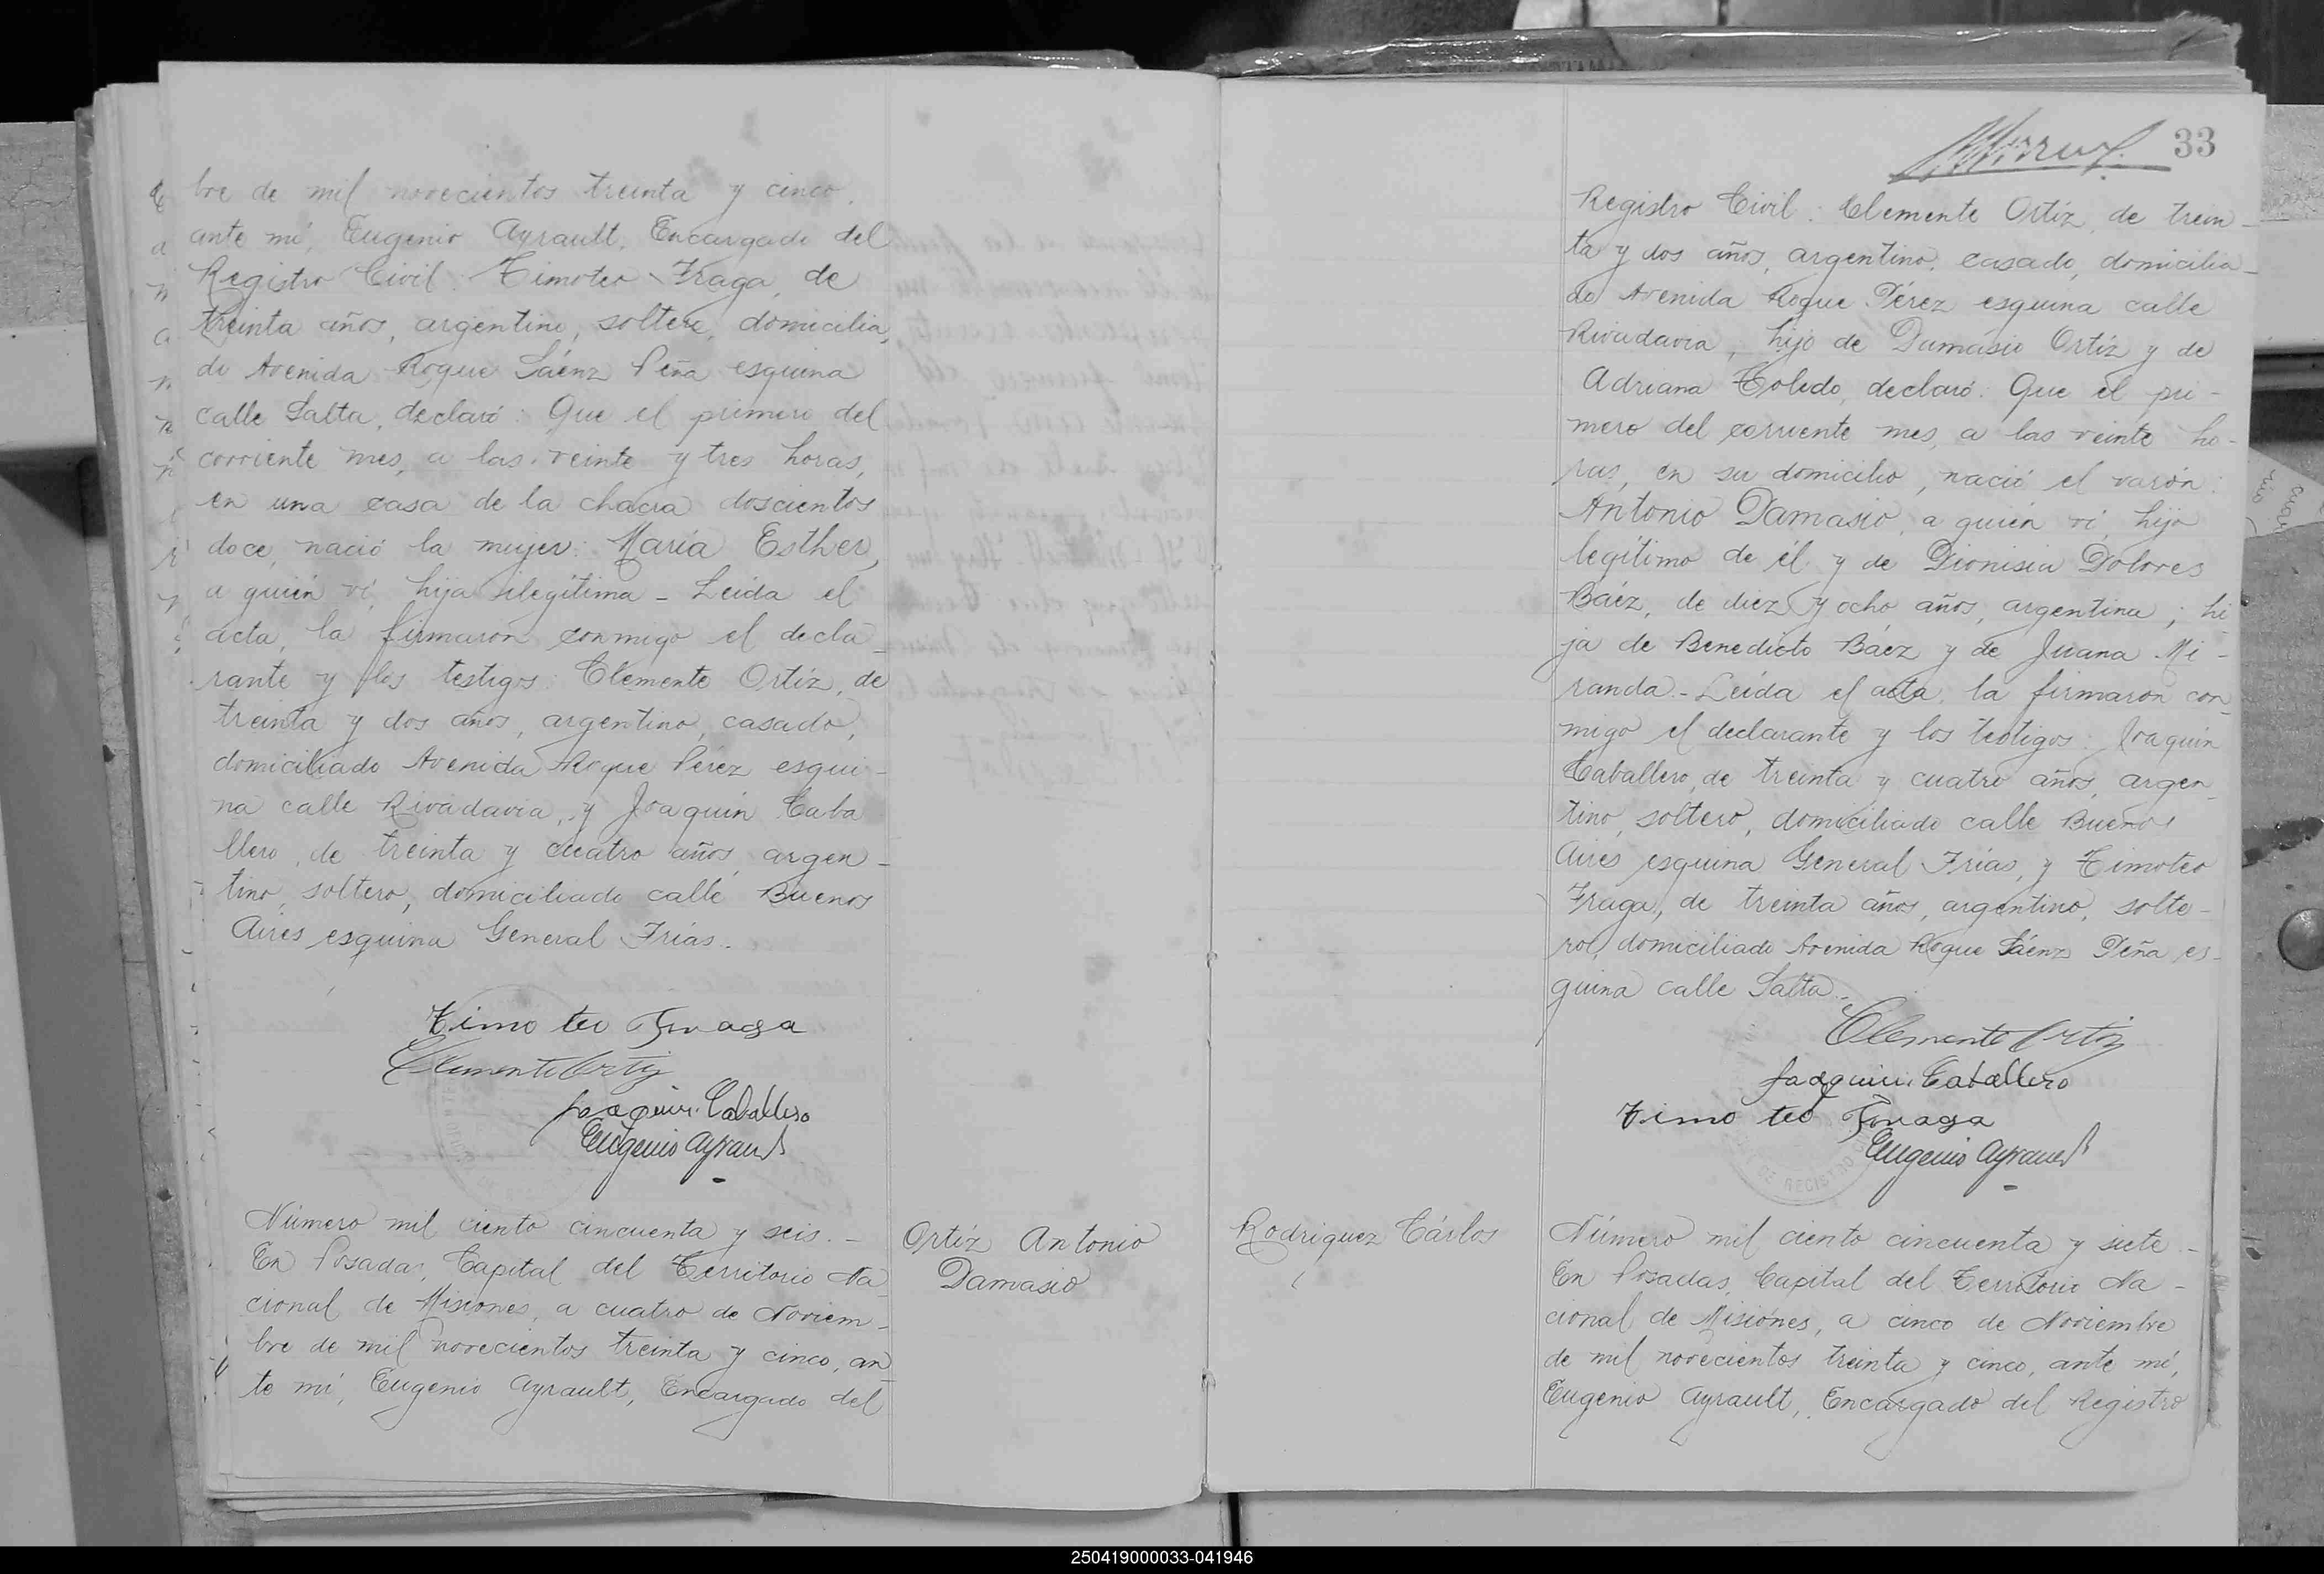 bre de mil novecientos treinta y cinco,
ante mí, Eugenio Ayrault, Encargado del
Registro Civil: Timoteo Fraga, de
treinta años, argentino, soltero, domicilia
do Avenida Roque Sáenz Peña esquina
calle Salta, declaró: Que el primero del
corriente mes, a las veinte y tres horas,
en una casa de la chacra doscientos
doce, nació la mujer: María Esther,
a quién ví, hija ilegítima - Leída el
acta, la firmaron conmigo el decla-
rante y los testigos: Clemente Ortíz, de
treinta y dos años, argentino, casado,
domiciliado Avenida Roque Pérez esqui-
na calle Rivadavia, y Joaquín Caba
llero, de treinta y cuatro años, argen-
tino, soltero, domiciliado calle Buenos
Aires esquina General Frías.
Timo teo Fraga
Clemente Ortiz
Joaquin Caballero
Eugenio Ayrault
Número mil ciento cincuenta y seis. -
En Posadas, Capital del Territorio Na
cional de Misiones, a cuatro de Noviem-
bre de mil novecientos treinta y cinco, an
te mí, Eugenio Ayrault, Encargado del
Ortíz Antonio
Damasio
33
Registro Civil: Clemente Ortíz, de trein-
ta y dos años, argentino, casado, domicilia-
do Avenida Roque Pérez esquina calle
Rivadavia, hijo de Damasio Ortíz y de
Adriana Toledo, declaró: Que el pri-
mero del corriente mes, a las veinte ho-
ras, en su domicilio, nació el varón:
Antonio Damasio, a quién ví, hijo
legítimo de él y de Dionisia Dolores
Báez, de diez y ocho años, argentina; hi-
ja de Benedicto Báez y de Juana Mi-
randa.- Leída el acta, la firmaron con-
migo el declarante y los testigos: Joaquín
Caballero, de treinta y cuatro años, argen-
tino, soltero, domiciliado calle Buenos
Aires esquina General Frías, y Timoteo
Fraga, de treinta años, argentino, solte-
ro, domiciliado Avenida Roque Sáenz Peña es-
quina calle Salta.-
Clemente Ortiz
Joaquin Caballero
Timo teo Fraga
Eugenio Ayrault
Rodriguez Cárlos
Número mil ciento cincuenta y siete -
En Posadas, Capital del Territorio Na-
cional de Misiones, a cinco de Noviembre
de mil novecientos treinta y cinco, ante mí,
Eugenio Ayrault, Encargado del Registro
250419000033-041946